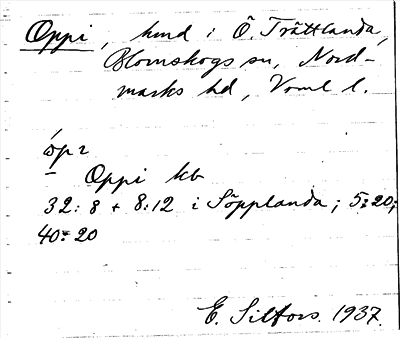 Oppi, hmd i Ö. Trättlanda,
Blomskogs sn, Nord-
marks hd, Vrml l.
òp2
Oppi kb
32:8 + 8:12 i Söpplanda; 5:20;
40:20
E. Silfors. 1937.